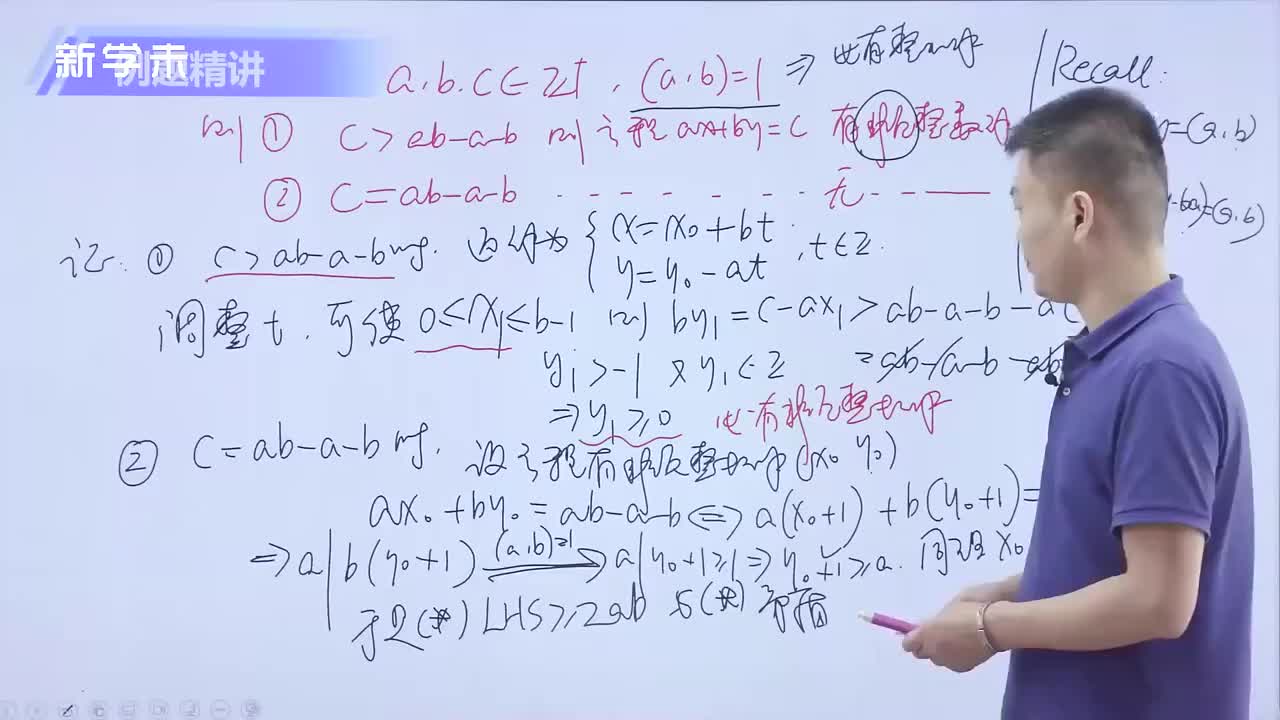 新学未
例题精讲
a.b.c∈Z⁺, (a,b)=1 ⇒ 必有整数解
Recall:
则 ① c>ab-a-b 则方程 ax+by=c 有非负整数解
=(a,b)
② c=ab-a-b - - - - - - - 无 - - ——
=(a,b)
证: ① c>ab-a-b时. 通解为 { x=x₀+bt y=y₀-at , t∈Z.
调整t, 可使 0≤x₁≤b-1 则 by₁=c-ax₁>ab-a-b-a(
y₁>-1 又 y₁∈Z =ab-a-b-ab
⇒y₁≥0 必有非负整数解
② c=ab-a-b时. 设方程有非负整数解(x₀ y₀)
ax₀+by₀=ab-a-b⇔a(x₀+1)+b(y₀+1)=
⇒a|b(y₀+1) (a,b)=1 → a|y₀+1≥1⇒y₀+1≥a. 同理 x₀
于是(*) LHS≥2ab 与(*)矛盾